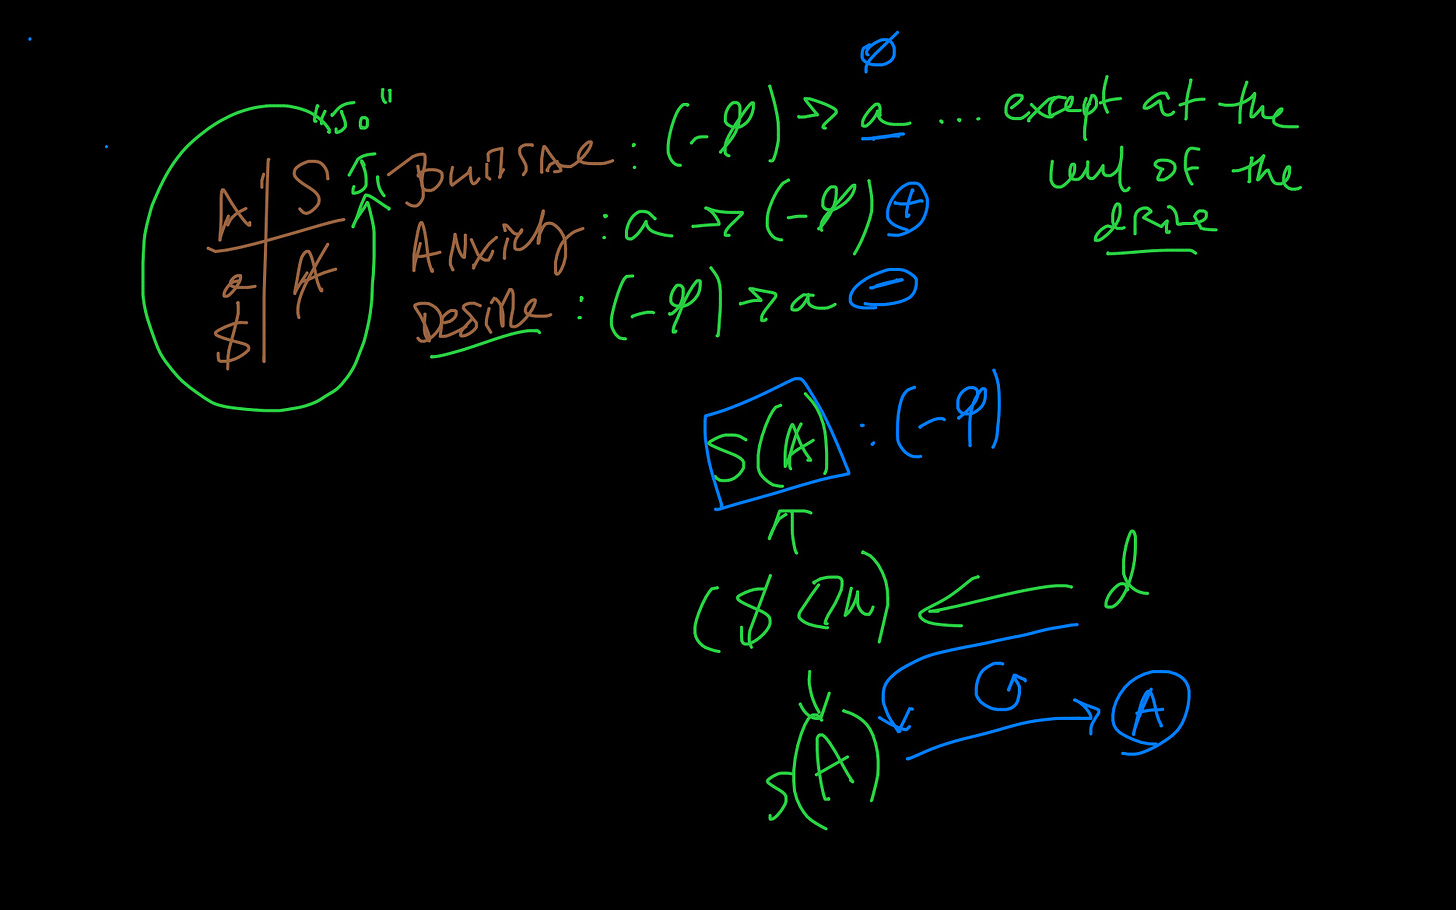 ∅
"J₀"
A | S J₁ Jouissance : (-φ) → a ... except at the
level of the
drive
a | Ⱥ Anxiety : a → (-φ) +
$ Desire : (-φ) → a −
S(Ⱥ) : (-φ)
↑
($ ◇ a) ← d
↓
s(A) → A